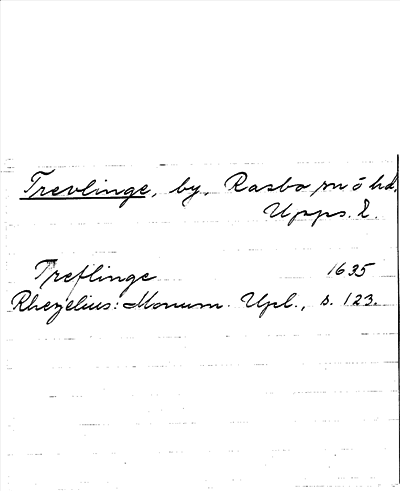 Trevlinge, by, Rasbo sn o hd.
Upps. l.
Treflinge 1635
Rhezelius: Monum. Upl., s. 123.